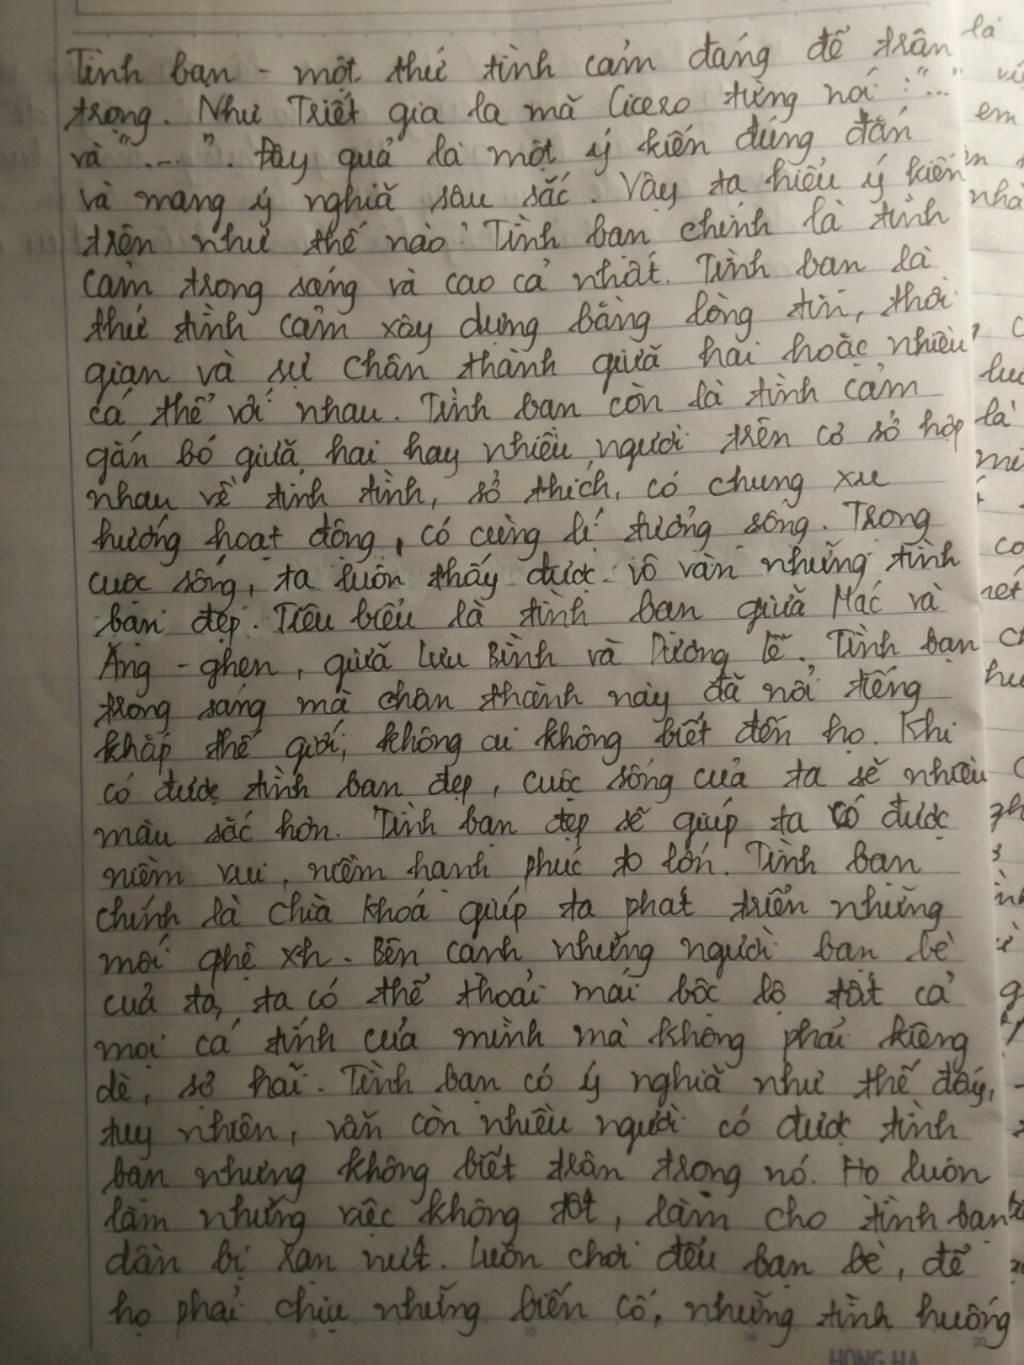 Tình bạn - một thứ tình cảm đáng để trân
trọng. Như Triết gia la mã Cicero từng nói : "..."
và ".... ". Đây quả là một ý kiến đúng đắn
và mang ý nghĩa sâu sắc. Vậy ta hiểu ý kiến
trên như thế nào? Tình bạn chính là tình
cảm trong sáng và cao cả nhất. Tình bạn là
thứ tình cảm xây dựng bằng lòng tin, thời
gian và sự chân thành giữa hai hoặc nhiều
cá thể với nhau. Tình bạn còn là tình cảm
gắn bó giữa hai hay nhiều người trên cơ sở hợp
nhau về tính tình, sở thích, có chung xu
hướng hoạt động, có cùng lí tưởng sống. Trong
cuộc sống, ta luôn thấy được vô vàn những tình
bạn đẹp. Tiêu biểu là tình bạn giữa Mác và
Ăng - ghen, giữa Lưu Bình và Dương Lễ. Tình bạn
trong sáng mà chân thành này đã nổi tiếng
khắp thế giới, không ai không biết đến họ. Khi
có được tình bạn đẹp, cuộc sống của ta sẽ nhiều
màu sắc hơn. Tình bạn đẹp sẽ giúp ta có được
niềm vui, niềm hạnh phúc to lớn. Tình bạn
chính là chìa khoá giúp ta phát triển những
mối qhệ xh. Bên cạnh những người bạn bè
của ta, ta có thể thoải mái bộc lộ tất cả
mọi cá tính của mình mà không phải kiêng
dè, sợ hãi. Tình bạn có ý nghĩa như thế đấy,
tuy nhiên, vẫn còn nhiều người có được tình
bạn nhưng không biết trân trọng nó. Họ luôn
làm những việc không tốt, làm cho tình bạn
dần bị rạn nứt. Luôn chơi đểu bạn bè, để
họ phải chịu những biến cố, những tình huống
HONG HA